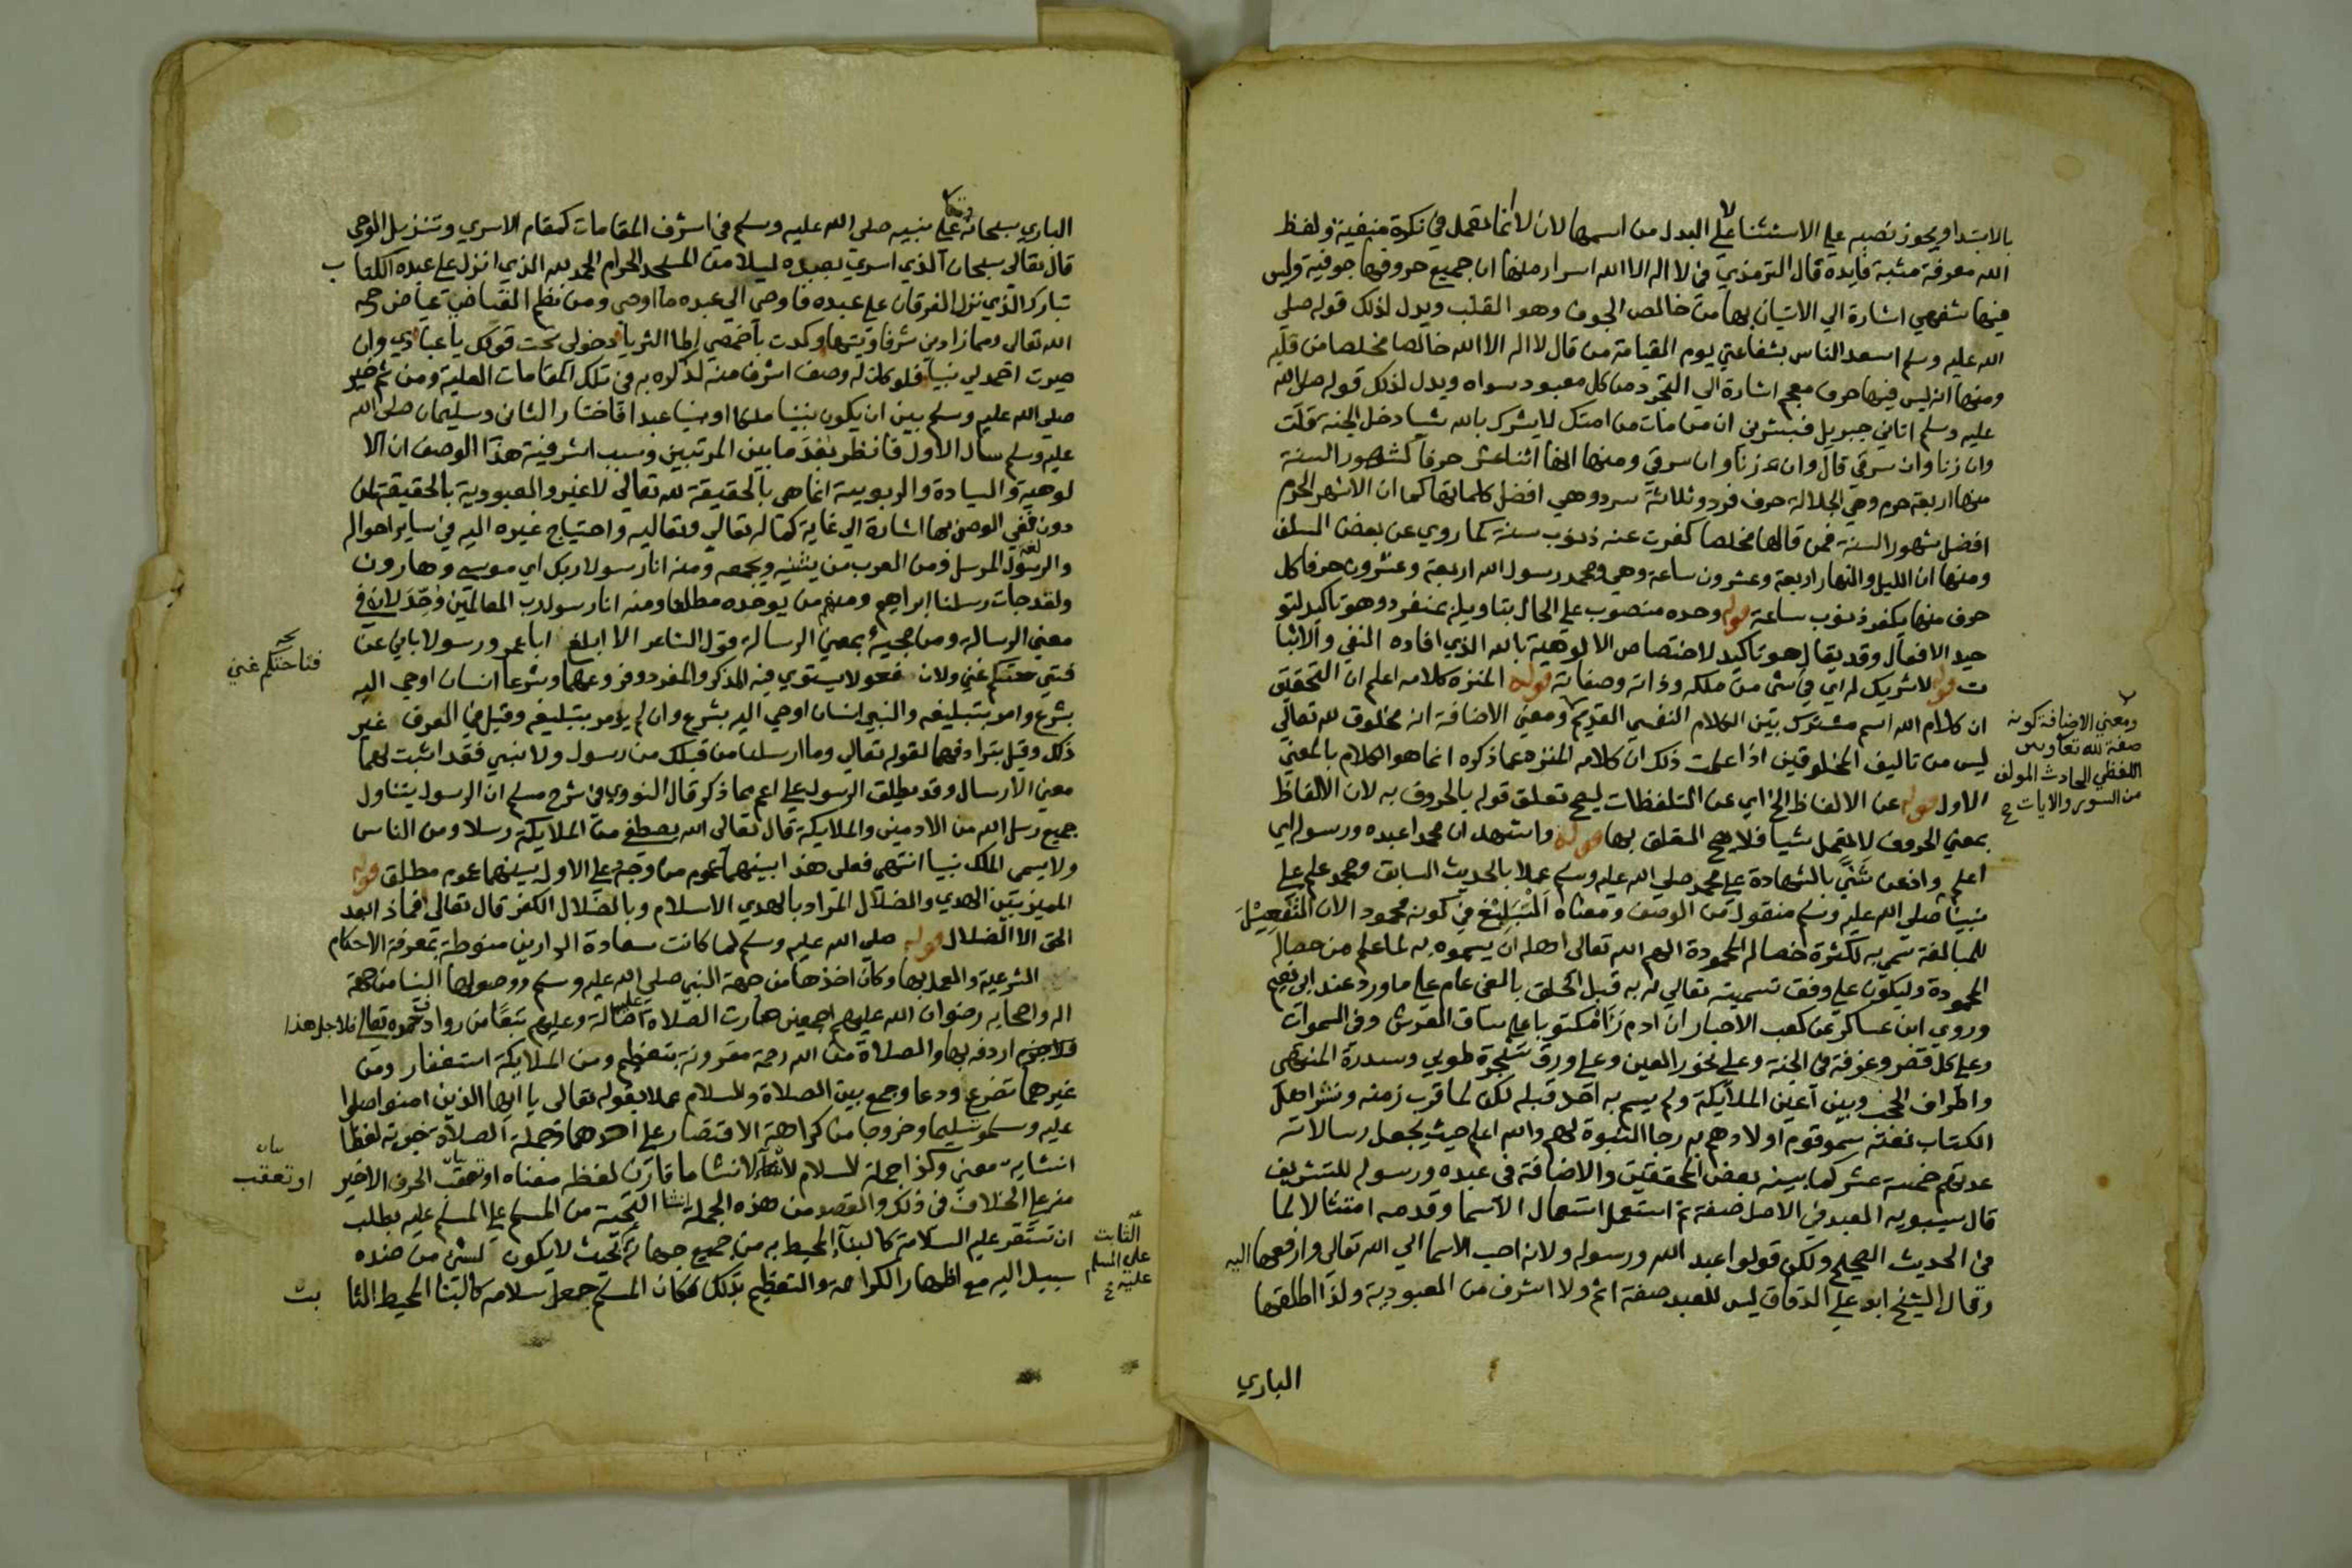 بالابتدا ويجوز نصبه علي الاستثنا لا علي البدل من اسمها لان لا انما تعمل في نكرة منفية ولفظ
الله معرفة مثبة فايده قال الترمذي في لا اله الا الله اسرار منها ان جميع حروفها جوفية وليس
فيها شفهي اشارة الي الاتيان بها من خالص الجوف وهو القلب ويدل لذلك قوله صلي
الله عليه وسلم اسعد الناس بشفاعتي يوم القيامة من قال لا اله الا الله خالصا مخلصا من قلبه
ومنها انه ليس فيها حرف معجم اشارة الي التجرد من كل معبود سواه ويدل لذلك قوله صلي الله
عليه وسلم اتاني جبريل فبشرني ان من مات من امتك لا يشرك بالله شيا دخل الجنة قلت
وان زنا وان سرق قال وان زنا وان سرق ومنها انها اثنا عشر حرفا كشهور السنة
منها اربعة حرم وهي الجلالة حرف فرد وثلاثة سرد وهي افضل كلماتها كما ان الاشهر الحرم
افضل شهور السنة فمن قالها مخلصا كفرت عنه ذنوب سنة كما روي عن بعض السلف
ومنها ان الليل والنهار اربعة وعشرون ساعة وهي ومحمد رسول الله اربعة وعشرون حرفا كل
حرف منها يكفر ذنوب ساعة قوله وحده منصوب علي الحال بتاويله بمنفرد وهو تاكيد لتو
حيد الافعال وقد يقال هو تاكيد لاختصاص الالوهية بالله الذي افاده النفي والاثبا
ت قوله لا شريك له اي في شي من ملكه وذاته وصفاته قوله المنزه كلامه اعلم ان التحقيق
ان كلام الله اسم مشترك بين الكلام النفسي القديم ومعني الاضافة انه مخلوق لله تعالي
ليس من تاليف المخلوقين اذا علمت ذلك ان كلامه المنزه عما ذكره انما هو الكلام بالمعني
الاول قوله عن الالفاظ الخ اي عن التلفظات ليصح تعلق قوله بالحروف به لان الالفاظ
بمعني الحروف لا تعمل شيا فلا يصح التعلق بها قوله واشهد ان محمدا عبده ورسوله اي
اعلم واذعن ثني بالشهادة علي محمد صلي الله عليه وسلم عملا بالحديث السابق ومحمد علم علي
نبينا صلي الله عليه وسلم منقول من الوصف ومعناه البليغ في كونه محمودا لان التفعيل
للمبالغة سمي به لكثرة خصاله المحمودة الهم الله تعالي اهله ان يسموه به لما علم من خصاله
المحمودة وليكون علي وفق تسميته تعالي له به قبل الخلق بالفي عام علي ما ورد عند ابي نعيم
وروي ابن عساكر عن كعب الاحبار ان ادم راه مكتوبا علي ساق العرش وفي السموات
وعلي كل قصر وغرفة في الجنة وعلي نحور العين وعلي ورق شجرة طوبي وسدرة المنتهي
واطراف الحجب وبين اعين الملايكة ولم يسم به احد قبله لكن لما قرب زمنه ونشر اهل
الكتاب نعته سمو قوم اولادهم به رجا النبوة لهم والله اعلم حيث يجعل رسالاته
عدتهم خمسة عشر كما بينه بعض المحققين والاضافة في عبده ورسوله للتشريف
قال سيبويه العبد في الاصل صفة ثم استعمل استعمال الاسما وقدمه امتثالا لما
في الحديث الصحيح ولكن قولوا عبد الله ورسوله ولانه احب الاسما الي الله تعالي وارفعها اليه
وقال الشيخ ابو علي الدقاق ليس للعبد صفة اتم ولا اشرف من العبودية ولذا اطلقها
الباري
ومعني الاضافة كونه
صفة لله تعالي وبين
اللفظي الحادث المولف
من السور والايات
الباري سبحانه علي نبيه صلي الله عليه وسلم في اشرف المقامات كمقام الاسري وتنزيل الوحي
قال تعالي سبحان الذي اسري بعبده ليلا من المسجد الحرام الحمد لله الذي انزل علي عبده الكتا ب
تبارك الذي نزل الفرقان علي عبده فاوحي الي عبده ما اوحي ومن نظم القاضي عياض رحمه
الله تعالي ومما زادني شرفا وتيها وكدت باخمصي اطا الثريا دخولي تحت قولك يا عبادي وان
صيرت احمد لي نبيا فلو كان له وصف اشرف منه لذكره به في تلك المقامات العلية ومن ثم خير
صلي الله عليه وسلم بين ان يكون نبيا ملكا او نبيا عبدا فاختار الثاني وسليمان صلي الله
عليه وسلم سال الاول فانظر بعد ما بين المرتبتين وسبب اشرفية هذا الوصف ان الا
لوهية والسيادة والربوبية انما هي بالحقيقة لله تعالي لا غير والعبودية بالحقيقة لمن
دونه ففي الوصف بها اشارة الي غاية كماله تعالي وتعاليه واحتياج غيره اليه في ساير احواله
والرسول لغة المرسل ومن العرب من يثنيه ويجمعه ومنه انا رسولا ربك اي موسي وهارون
ولقد جات رسلنا ابراهيم ومنهم من يوحده مطلقا ومنه انا رسول رب العالمين وحد لان في
معني الرسالة ومن مجيئه بمعني الرسالة قول الشاعر الا ابلغ ابا عمرو رسولا باني عن
فتاحتكم غني ولان فعولا يستوي فيه المذكر والمفرد وفروعهما وشرعا انسان اوحي اليه
بشرع وامر بتبليغه والنبي انسان اوحي اليه بشرع وان لم يؤمر بتبليغه وقيل في الفرق غير
ذلك وقيل بترادفهما لقوله تعالي وما ارسلنا من قبلك من رسول ولا نبي فقد اثبت لهما
معني الارسال وقد يطلق الرسول علي اعم مما ذكر قال النووي في شرح مسلم ان الرسول يتناول
جميع رسل الله من الادميين والملايكة قال تعالي الله يصطفي من الملايكة رسلا ومن الناس
ولا يسمي الملك نبيا انتهي فعلي هذا بينهما عموم من وجه وعلي الاول بينهما عموم مطلق قوله
المميز بين الهدي والضلال المراد بالهدي الاسلام وبالضلال الكفر قال تعالي فماذا بعد
الحق الا الضلال قوله صلي الله عليه وسلم لما كانت سعادة الدارين منوطة بمعرفة الاحكام
الشرعية والعمل بها وكان اخذها من جهة النبي صلي الله عليه وسلم ووصولها الينا من جهة
اله واصحابه رضوان الله عليهم اجمعين صارت الصلاة عليه اصالة وعليهم تبعا من روادف حمده تعالي فلاجل هذا
اردفه بها والصلاة من الله رحمة مقرونة بتعظيم ومن الملايكة استغفار ومن
غيرهما تضرع ودعا وجمع بين الصلاة والسلام عملا بقوله تعالي يا ايها الذين امنوا صلوا
عليه وسلموا تسليما وخروجا من كراهة الاقتصار علي احدهما وجملة الصلاة خبرية لفظا
انشاية معني وكذا جملة السلام لان الانشا ما قارن لفظه معناه او تعقب الحرف الاخير
منه علي الخلاف في ذلك والقصد من هذه الجملة انشا التحية من المسلم علي المسلم عليه بطلب
ان تستقر عليه السلامة كالبنا المحيط به من جميع جهاته بحيث لا يكون لشي من ضده
سبيل اليه مع اظهار الكرامة والتعظيم بذلك فكان المسلم جعل سلامه كالبنا المحيط الثا بت
فتاحتكم غني
او تعقب
الثابت
علي المسلم
عليه